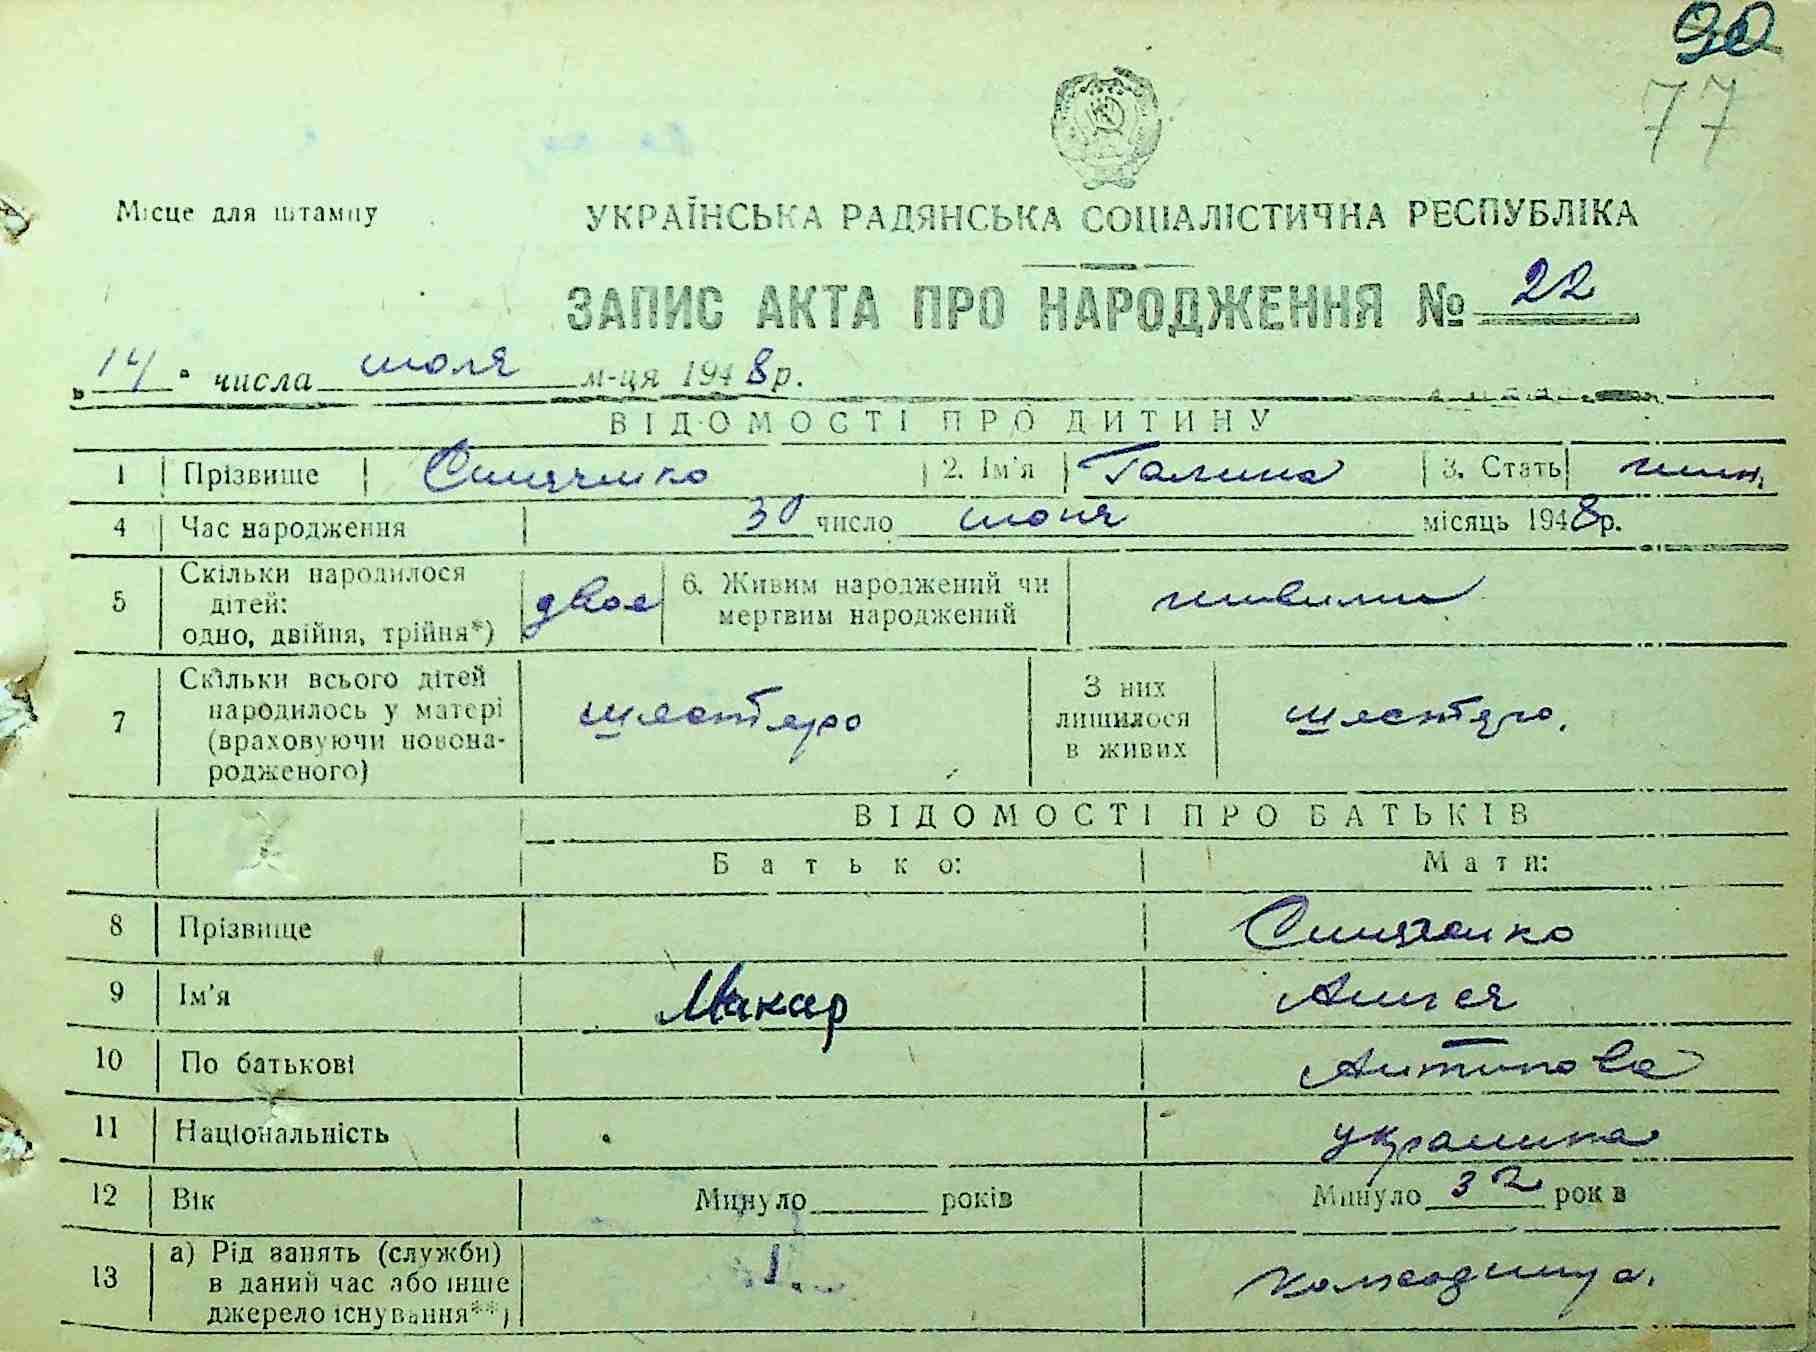 90
77
Місце для штампу
УКРАЇНСЬКА РАДЯНСЬКА СОЦІАЛІСТИЧНА РЕСПУБЛІКА
ЗАПИС АКТА ПРО НАРОДЖЕННЯ № 22
„14" числа июля м-ця 1948р.
ВІДОМОСТІ ПРО ДИТИНУ
1 Прізвище 2. Ім'я Галина 3. Стать жен.
4 Час народження 30 число июня місяць 1948р.
5 Скільки народилося
дітей:
одно, двійня, трійня*) двое 6. Живим народжений чи
мертвим народжений живыми
7 Скільки всього дітей
народилось у матері
(враховуючи новона-
родженого) шестеро З них
лишилося
в живих шестеро.
ВІДОМОСТІ ПРО БАТЬКІВ
Батько: Мати:
8 Прізвище
9 Ім'я Макар
10 По батькові Антиповa
11 Національність украинка
12 Вік Минуло років Минуло 32 років
13 а) Рід занять (служби)
в даний час або інше
джерело існування**) колхозница.